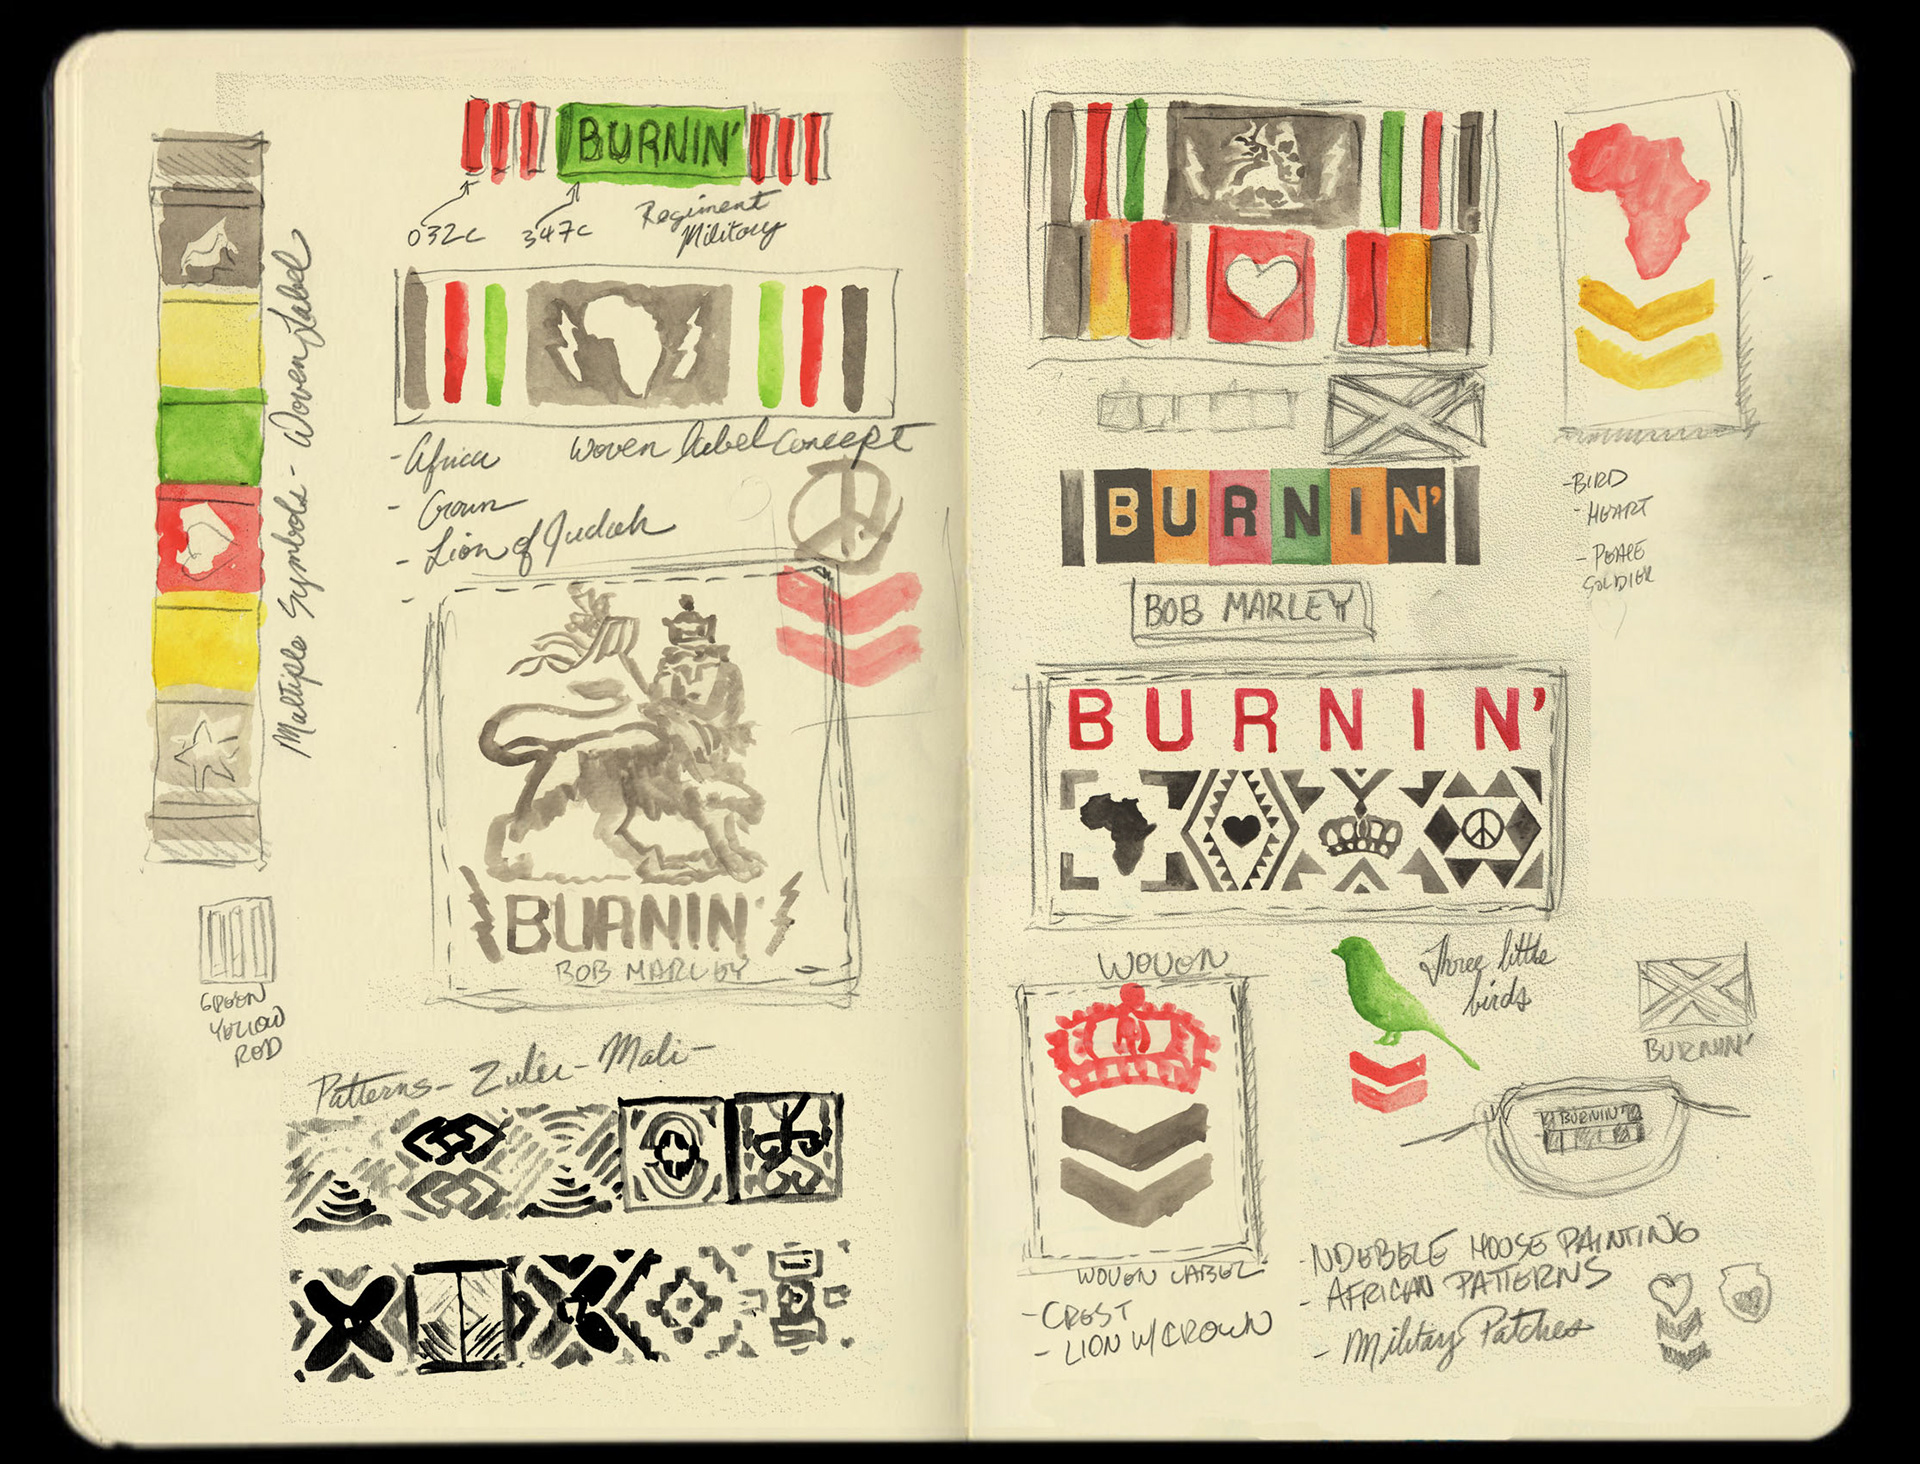 BURNIN'
032C
347C
Regiment
Military
Multiple Symbols - Woven Label
- Africa
Woven label concept
- Crown
- Lion of Judah
BURNIN'
BOB MARLEY
GREEN
YELLOW
RED
Patterns - Zulu - Mali -
BURNIN'
BOB MARLEY
- BIRD
- HEART
- PEACE
SOLDIER
BURNIN'
WOVEN
Three little
birds
BURNIN'
BURNIN'
WOVEN LABEL
- CREST
- LION W/ CROWN
- NDEBELE HOUSE PAINTING
- AFRICAN PATTERNS
- Military Patches